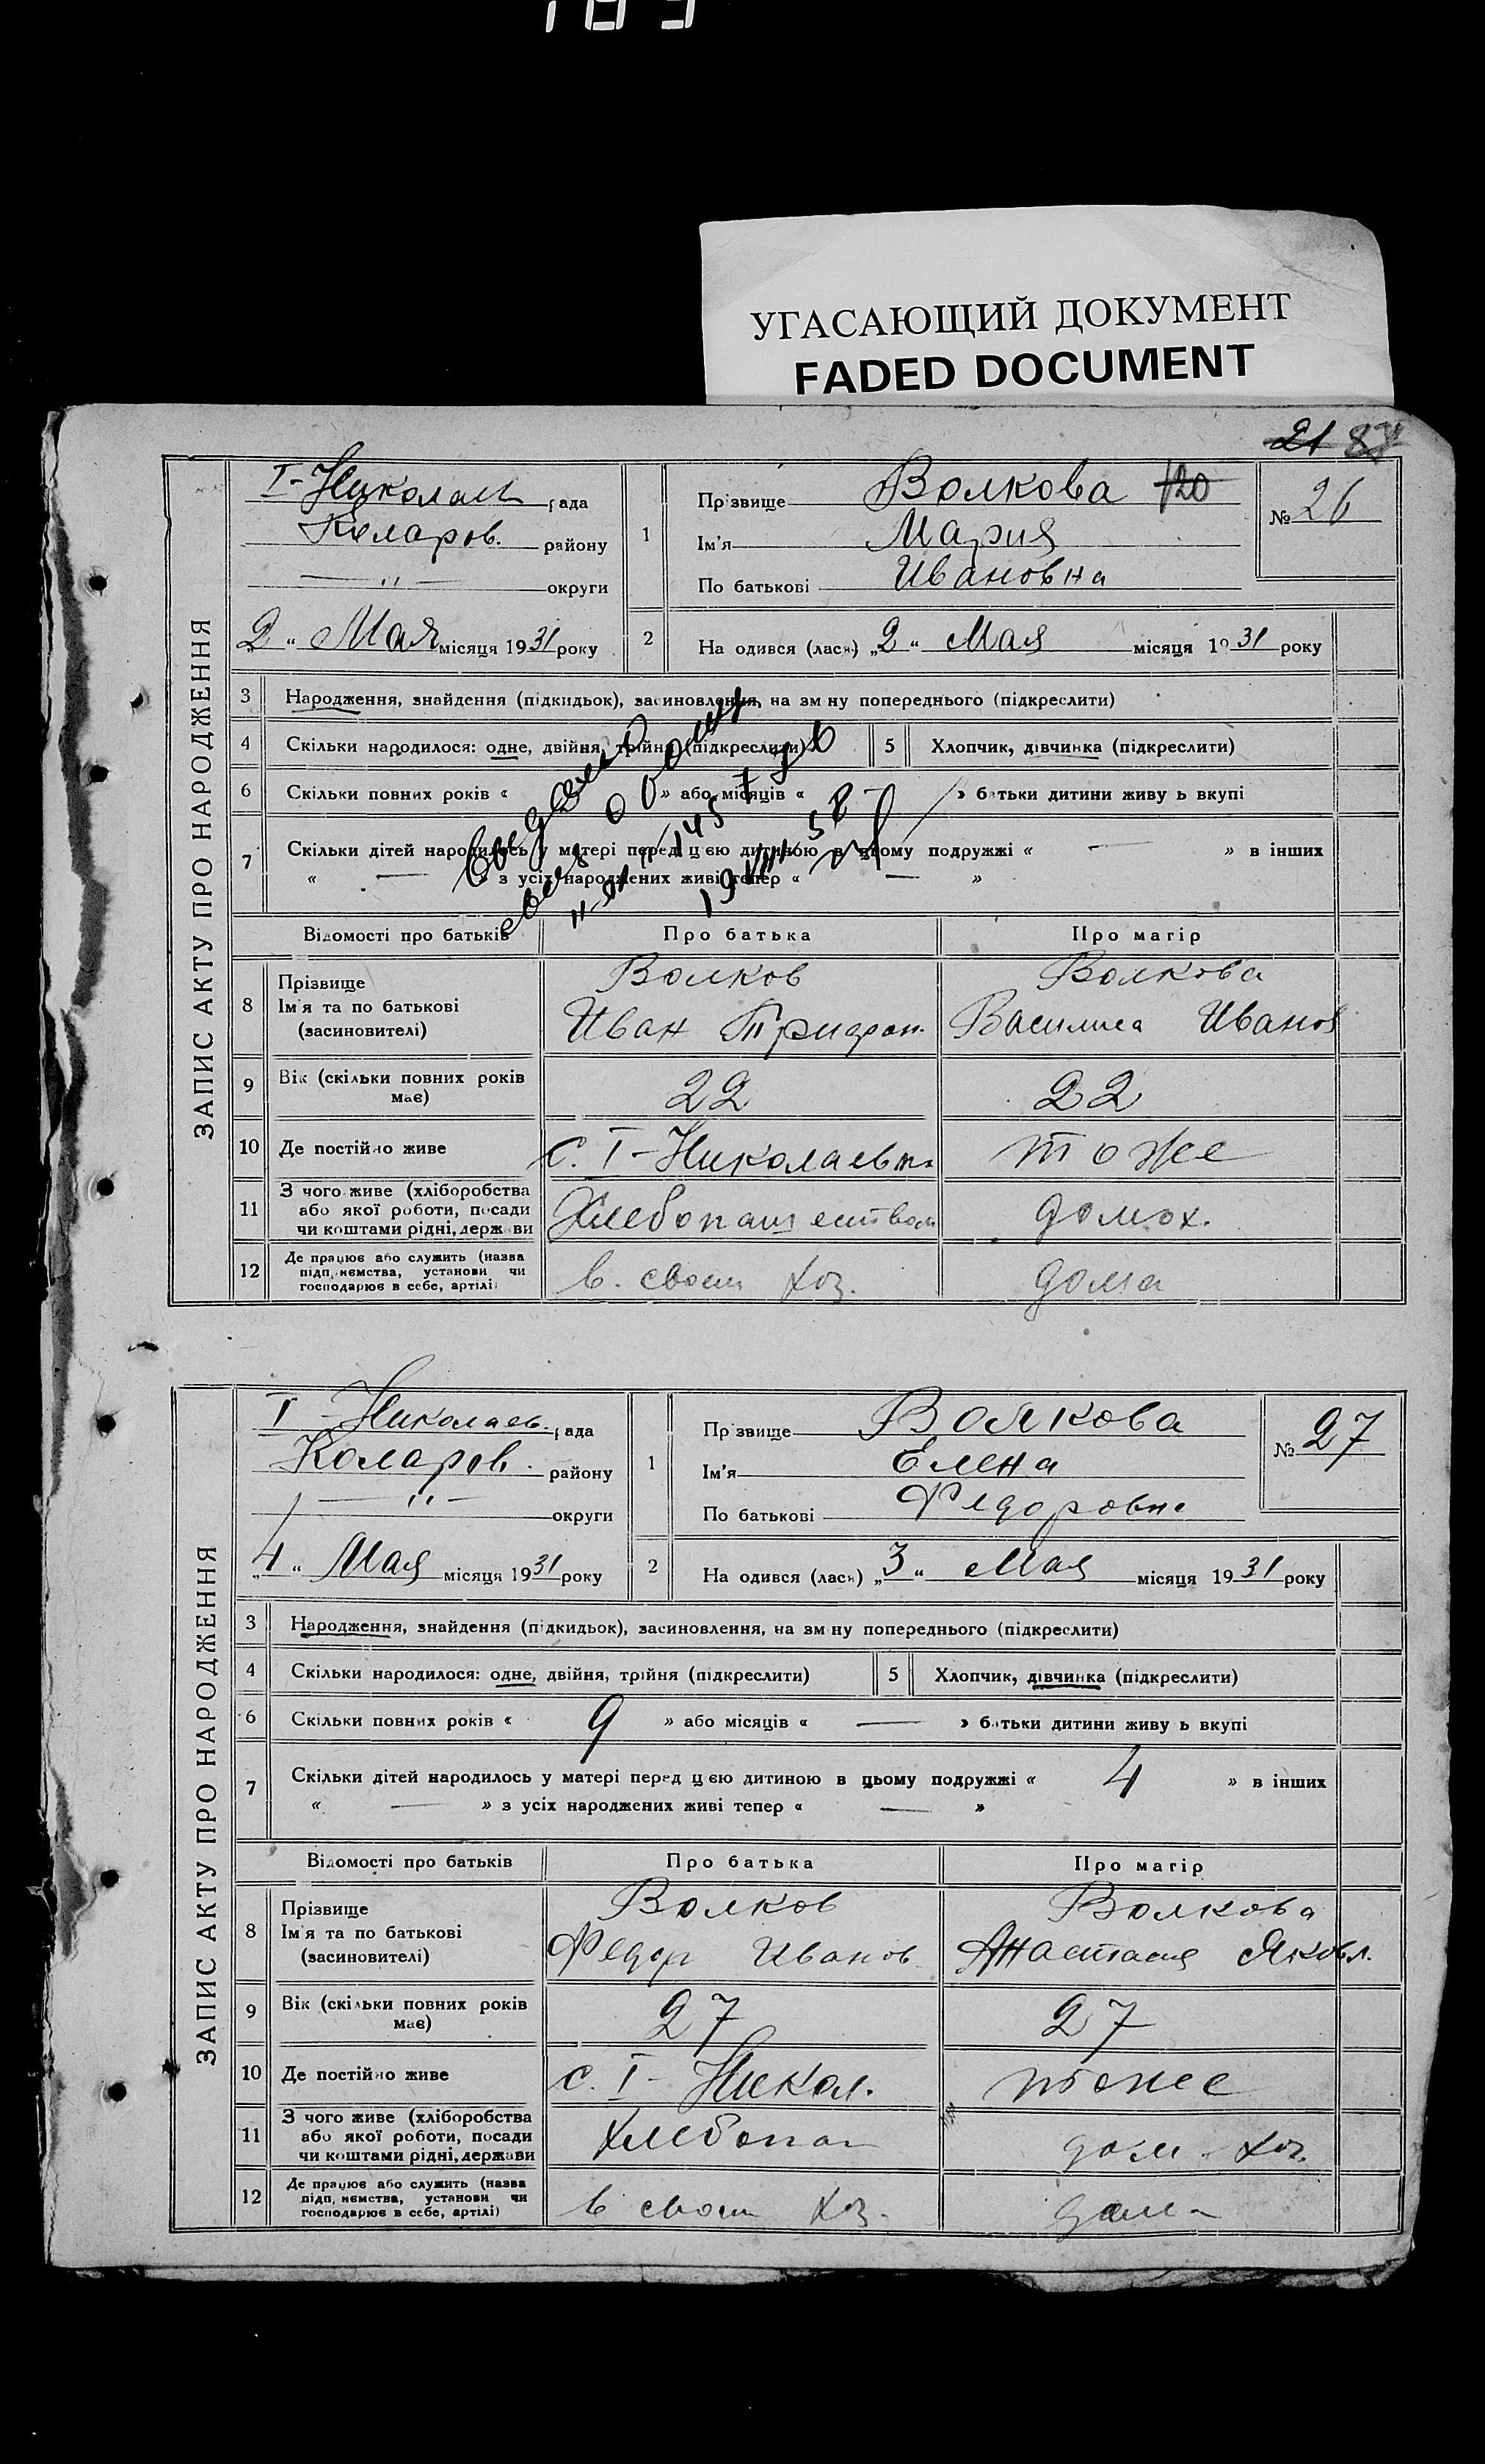 183
УГАСАЮЩИЙ ДОКУМЕНТ
FADED DOCUMENT
21
ЗАПИС АКТУ ПРО НАРОДЖЕННЯ
I-Николаев рада
Коларов. району
— " — округи
2 " Мая місяця 1931 року
1
Прізвище Волкова 120
Ім'я Мария
По батькові Ивановна
№ 26
2
На одився (лася) „2" Мая місяця 1931 року
3 Народження, знайдення (підкидьок), засиновлення, на зм ну попереднього (підкреслити)
4 Скільки народилося: одне, двійня, трійня (підкреслити)
5 Хлопчик, дівчинка (підкреслити)
6 Скільки повних років « » або місяців « — » батьки дитини живу ь вкупі
7 Скільки дітей народилось у матері перед цією дитиною в цьому подружжі « — » в інших
« — » з усіх народжених живі тепер « — »
Відомості про батьків
Про батька
Про матір
8 Прізвище
Ім'я та по батькові
(засиновителі)
Волков
Иван
Волкова
Василиса Иванов
9 Вік (скільки повних років
має)
22
22
10 Де постійно живе
с. I-Николаевка
тоже
11 З чого живе (хліборобства
або якої роботи, посади
чи коштами рідні, держави
Хлебопашеством
домох.
12 Де працює або служить (назва
підприємства, установи чи
господарює в себе, артілі)
в. своем хоз.
дома
ЗАПИС АКТУ ПРО НАРОДЖЕННЯ
I-Николаев. рада
Коларов. району
— " — округи
„4" Мая місяця 1931 року
1
Прізвище Волкова
Ім'я Елена
По батькові Федоровна
№ 27
2
На одився (лася) „3" Мая місяця 1931 року
3 Народження, знайдення (підкидьок), засиновлення, на зм ну попереднього (підкреслити)
4 Скільки народилося: одне, двійня, трійня (підкреслити)
5 Хлопчик, дівчинка (підкреслити)
6 Скільки повних років « 9 » або місяців « — » батьки дитини живу ь вкупі
7 Скільки дітей народилось у матері перед цією дитиною в цьому подружжі « 4 » в інших
« — » з усіх народжених живі тепер « — »
Відомості про батьків
Про батька
Про матір
8 Прізвище
Ім'я та по батькові
(засиновителі)
Волков
Федор Иванов
Волкова
Анастасия Яковл.
9 Вік (скільки повних років
має)
27
27
10 Де постійно живе
с. I-Никол.
тоже
11 З чого живе (хліборобства
або якої роботи, посади
чи коштами рідні, держави
Хлебопаш
дом. хоз.
12 Де працює або служить (назва
підприємства, установи чи
господарює в себе, артілі)
в своем хоз.
дома